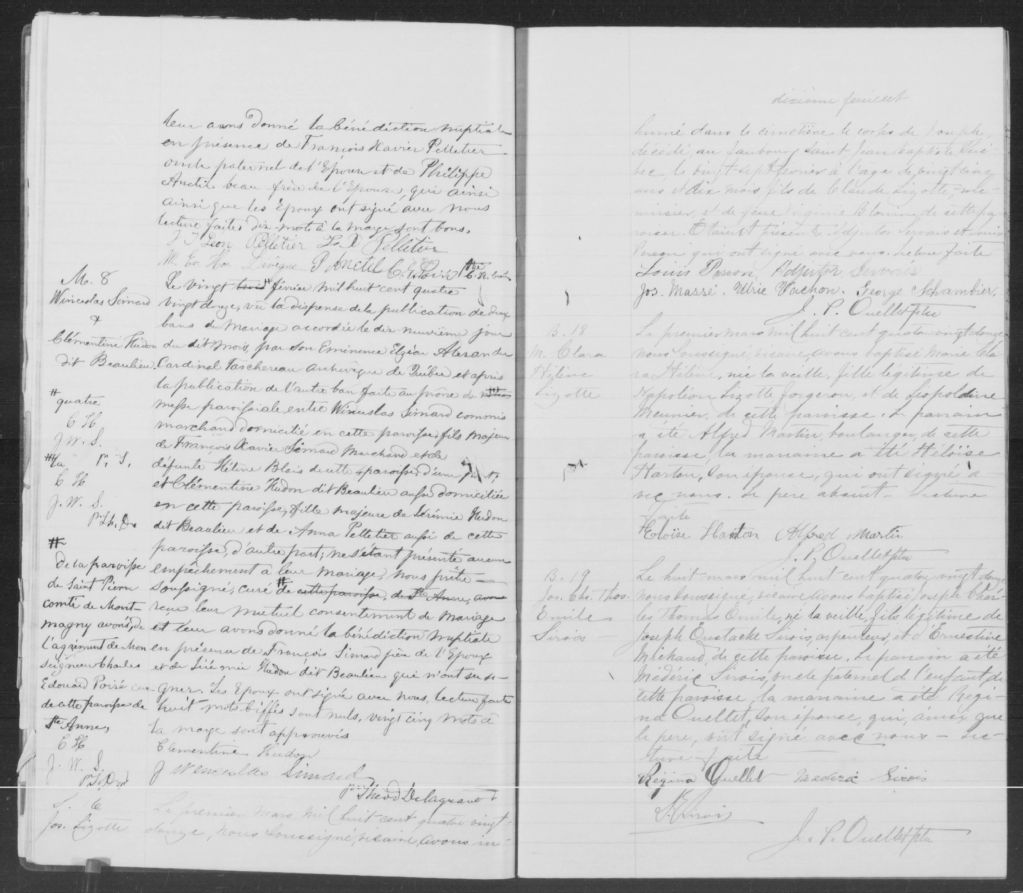 leur avons donné la bénédiction nuptiale
en présence de François Xavier Pelletier
oncle paternel de l'Epoux et de Philippe
Anctil beau frère de l'Epouse, qui ainsi
ainsi que les Epoux ont signé avec nous
lecture faite, dix mots à la marge sont bons.
J. Léon Pelletier F. X. Pelletier
P. Anctil
M. 8
Winceslas Simard
&
Clémentine Hudon
dit Beaulieu
#
quatre
C H
J. W. S.
C H
J. W. S.
#
de la paroisse
de Saint Pierre
comté de Mont
magny avons, de
l'agrément de Mon
seigneur Charles
Edouard Poiré curé
de cette paroisse de
Ste Anne,
C H
J. W. S.
Le vingt février mil huit cent quatre
vingt douze, vu la dispense de la publication de deux
bans de mariage accordée le dix neuvième jour
du dit mois, par son Eminence Elzéar Alexandre
Cardinal Taschereau archevêque de Québec et après
la publication de l'autre ban faite au prône de
messe paroissiale entre Winceslas Simard commis
marchand domicilié en cette paroisse, fils majeur
de François Xavier Simard Marchand et de
défunte Hélène Blais de cette paroisse, d'une part,
et Clémentine Hudon dit Beaulieu aussi domiciliée
en cette paroisse, fille majeure de Jérémie Hudon
dit Beaulieu et de Anna Pelletier aussi de cette
paroisse, d'autre part; ne s'étant présenté aucun
empêchement à leur mariage, nous prêtre
soussigné, curé # de cette paroisse, de Ste Anne, avons
reçu leur mutuel consentement de mariage
et leur avons donné la bénédiction nuptiale
en présence de François Simard père de l'Epoux
et de Jérémie Hudon dit Beaulieu qui n'ont su si-
gner. Les Epoux ont signé avec nous, lecture faite
huit mots biffés sont nuls, vingt cinq mots à
la marge sont approuvés
Clementine Hudon
J Wenceslas Simard
Théod Delagrave
S. 6
Jos. Lizotte
Le premier mars mil huit cent quatre vingt
douze, nous soussigné, vicaire, avons in-
dixième feuillet
humé dans le cimetière le corps de Joseph,
décédé, au faubourg Saint Jean baptiste Qué-
bec le vingt sept février à l'âge de vingt cinq
ans et dix mois fils de Claude Lizotte, me-
nuisier, et de de cette pa-
roisse. Etaient présents Adjutor Servais et Louis
Pinson qui ont signé avec nous. Lecture faite
Louis Pinson, Adjutor Servais
Jos. Massé. Ulric Vachon. George
J. P. Ouellet ptre
B. 18
M. Clara
Hélène
Lizotte
Le premier mars mil huit cent quatre vingt douze
nous soussigné, vicaire avons baptisé Marie Cla
ra Hélène, née la veille, fille légitime de
Napoléon Lizotte forgeron, et de Léopoldine
Meunier, de cette paroisse. Le parrain
a été Alfred Martin, boulanger, de cette
paroisse, la marraine a été Héloïse
son épouse, qui ont signé a
vec nous. Le père absent. Lecture
faite
Héloïse Alfred Martin
J. P. Ouellet ptre
B. 19
Jos. Chs. Thos.
Emile
Sirois
Le huit mars mil huit cent quatre vingt douze
nous soussigné, vicaire avons baptisé Joseph Char
les Thomas Emile, né la veille, fils légitime de
Joseph Eustache Sirois, arpenteur, et d'Ernestine
Michaud, de cette paroisse. Le parrain a été
Médéric Sirois, oncle paternel de l'enfant de
cette paroisse la marraine a été Régi
na Ouellet, son épouse, qui, ainsi que
le père, ont signé avec nous. Lec-
ture faite
Régina Ouellet Médéric Sirois
Sirois
J. P. Ouellet ptre